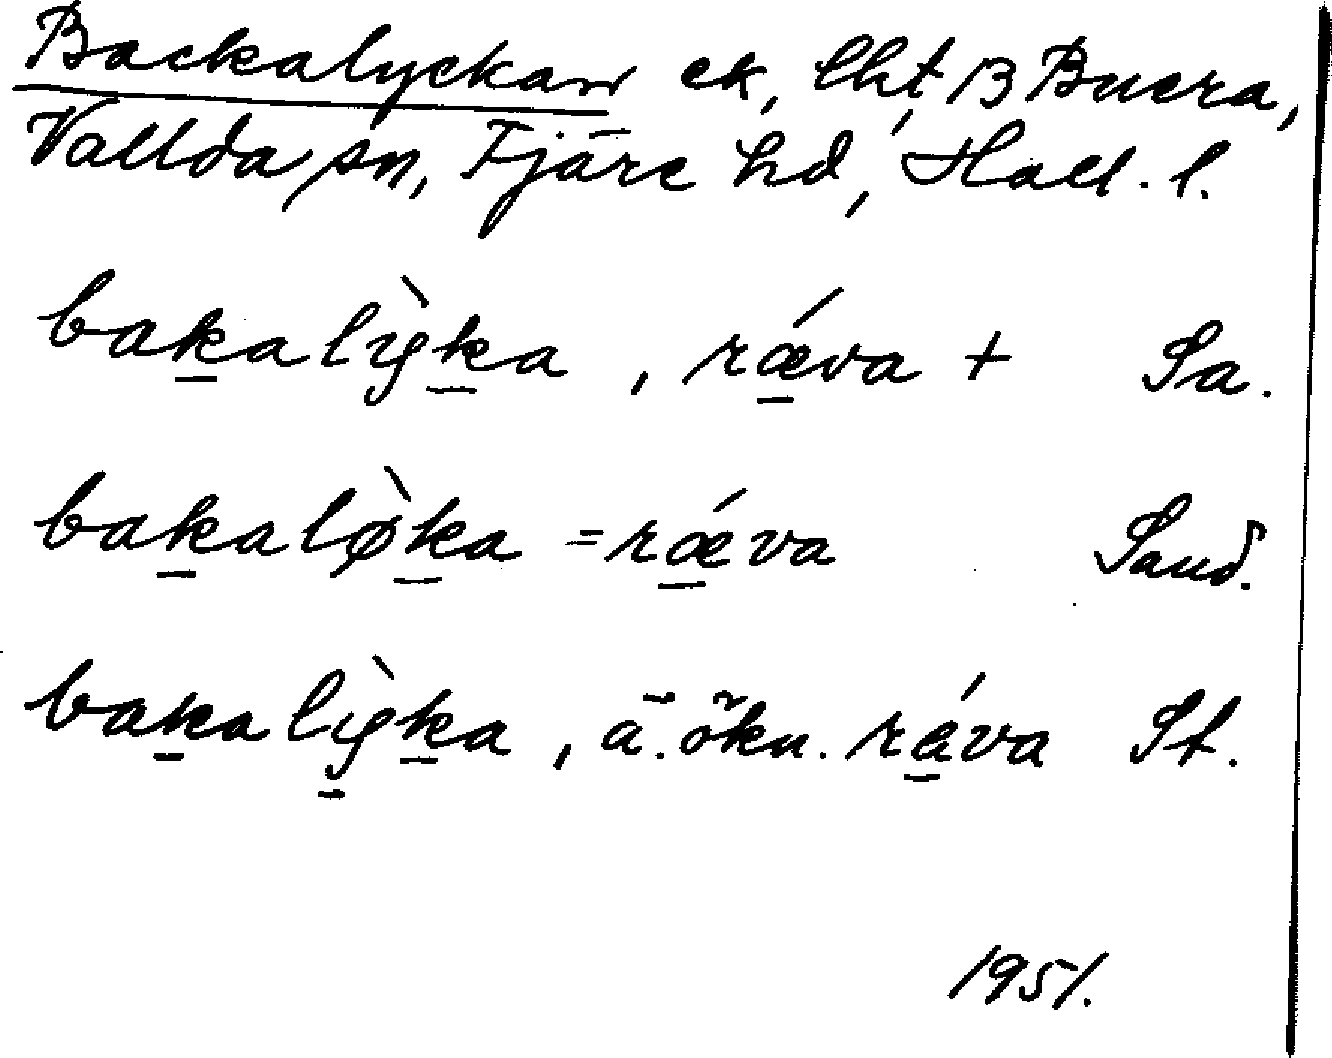 Backalyckan ek, lht, 13 Buera,
Vallda sn, Fjäre hd, Hall. l.
bakalỳka, rǽva + Sa.
bakaløka = rǽva Sand.
bakalỳka, ä. ökn. ráva St.
1951.